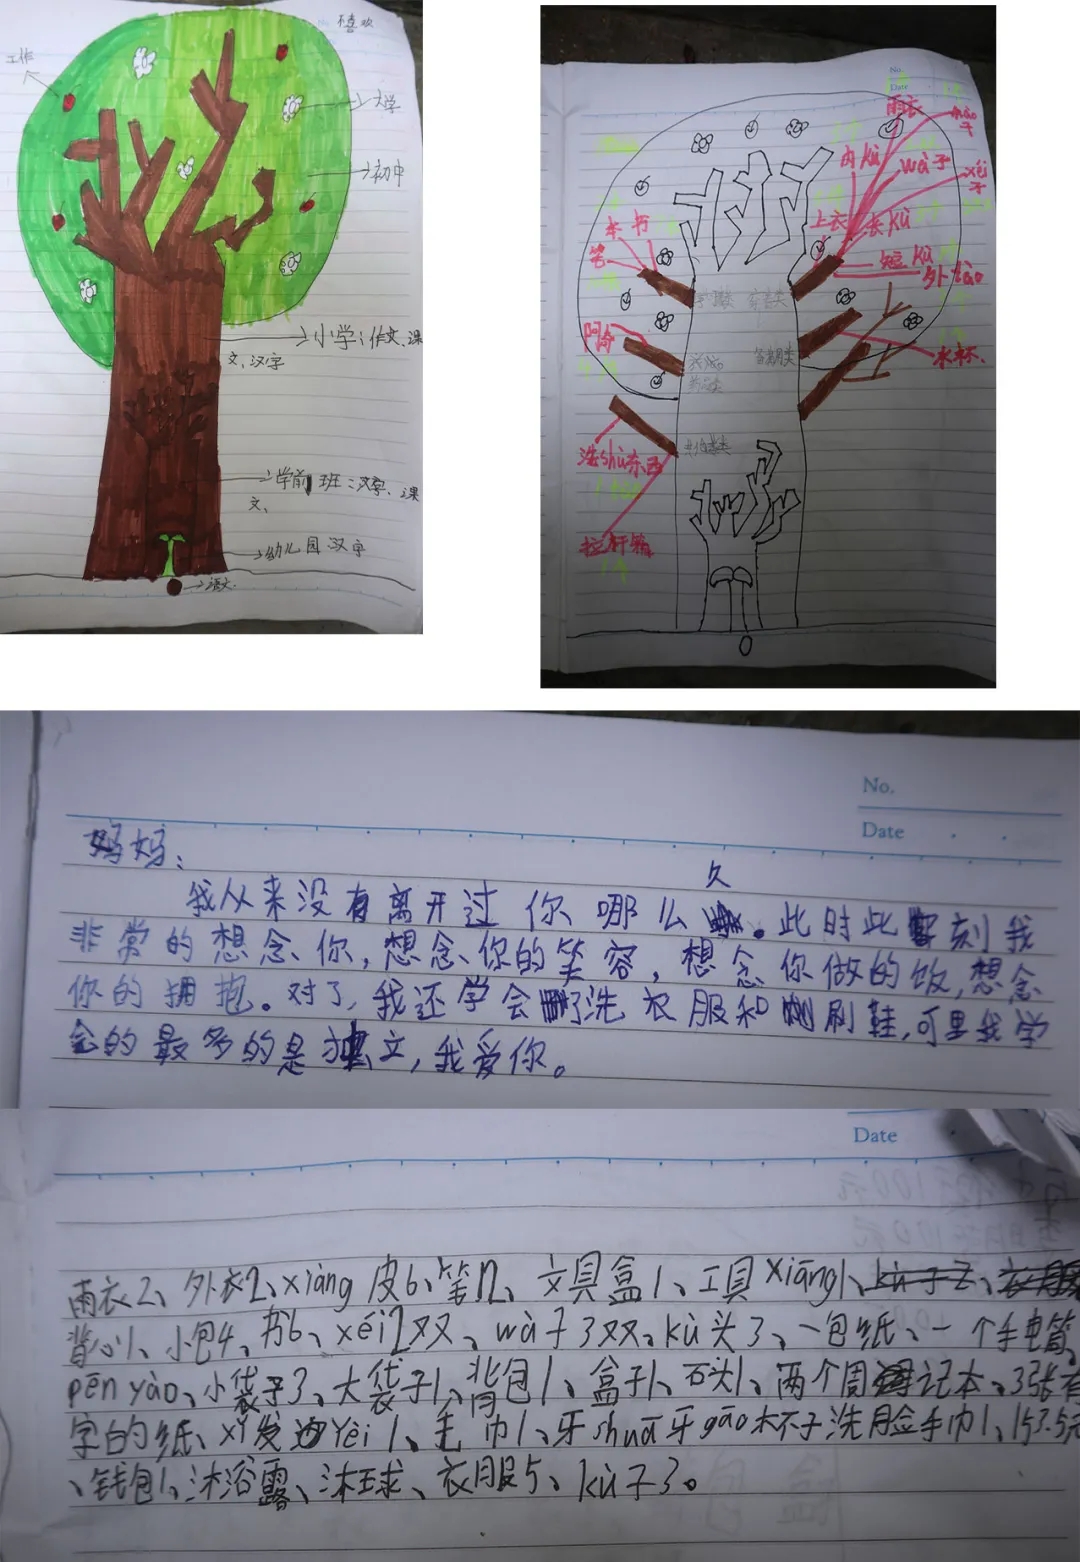 不喜欢
工作
大学
初中
小学：作文、课
文、汉字
学前班：汉字、课
文、
幼儿园汉字
语文
No.
Date
雨衣
mào
子
内kù
wà子
xéi
子
上衣
长kù
短kù
外tào
本 书
笔
水杯.
洗shù东西
拉杆箱
No.
Date
妈妈：
我从来没有离开过你哪么久。此时此刻我
非常的想念你，想念你的笑容，想念你做的饭，想念
你的拥抱。对了，我还学会了洗衣服和刷鞋，可里我学
会的最多的是独立，我爱你。
Date
雨衣2、外衣2、xiàng皮6、笔12、文具盒1、工具xiāng1、kù子2、衣服
背心1、小包4、书6、xéi2双、wà子3双、kù头3、一包纸、一个手电筒、
pēn yào、小袋子3、大袋子1、背包1、盒子1、石头1、两个周记本、3张有
字的纸、xǐ发yèi1、毛巾1、牙shuā牙gāo杯子洗脸手巾1、153.5元
、钱包1、沐浴露、沐球、衣服5、kù子3。